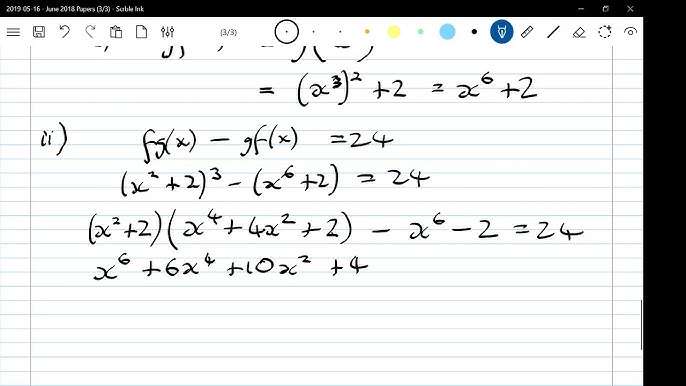 2019-05-16 - June 2018 Papers (3/3) - Scrble Ink
(3/3)
= (x³)² + 2 = x⁶ + 2
ii) fg(x) - gf(x) = 24
(x² + 2)³ - (x⁶ + 2) = 24
(x² + 2)(x⁴ + 4x² + 2) - x⁶ - 2 = 24
x⁶ + 6x⁴ + 10x² + 4